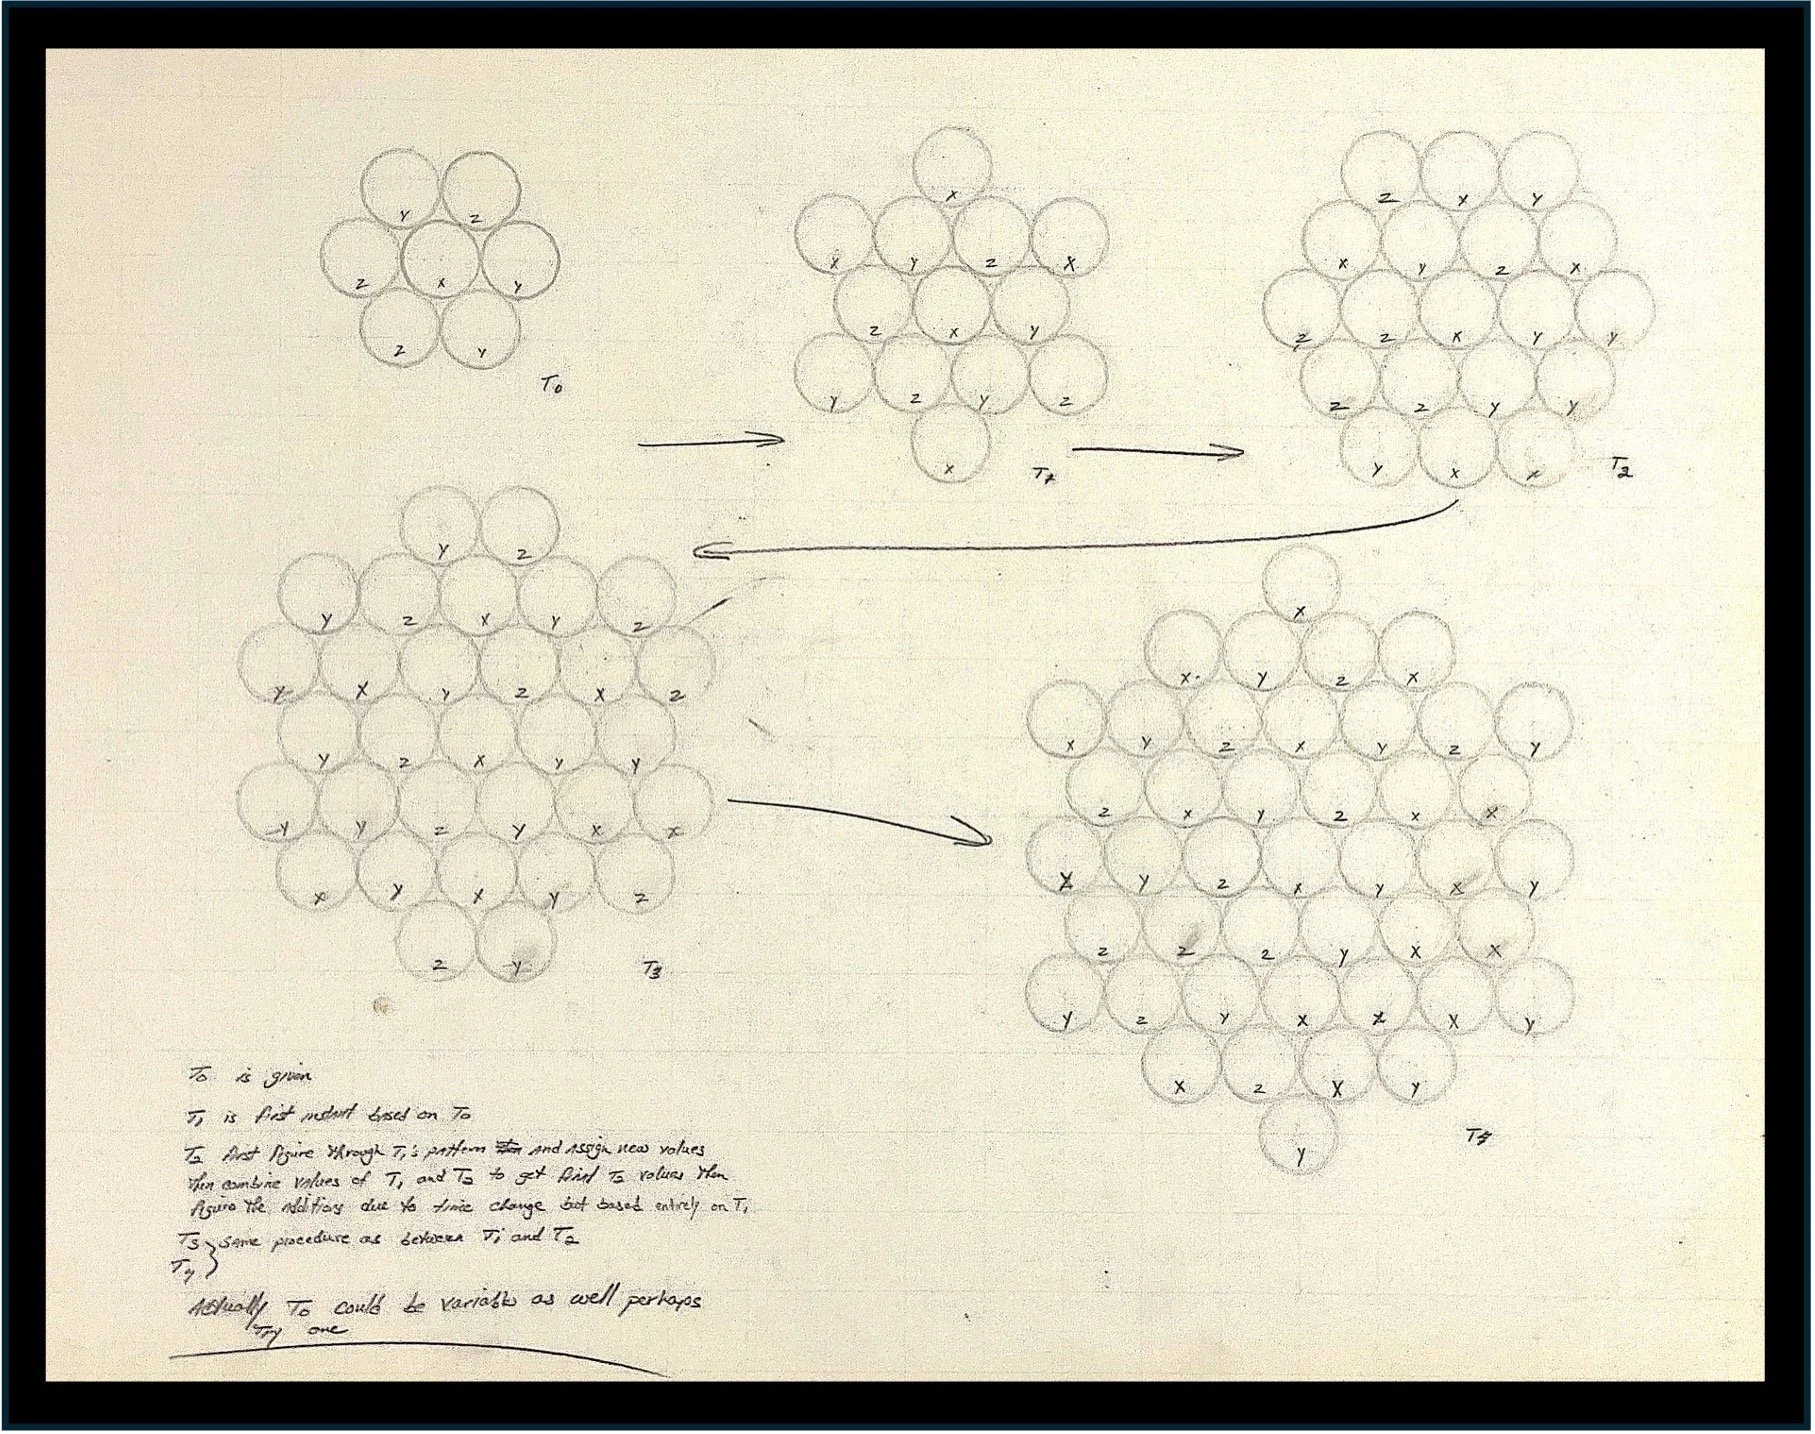 Y Z
Z X Y
Z Y
T0
X
X Y Z X
Z X Y
Y Z Y Z
X
T1
Z X Y
X Y Z X
Z Z X Y Y
Z Z Y Y
Y X X
T2
Y Z
Y Z X Y Z
Y X Y Z X Z
Y Z X Y Y
Y Y Z Y X X
X Y X Y Z
Z Y
T3
X
X Y Z X
X Y Z X Y Z Y
Z X Y Z X X
Y Z X Y X Y
Z Z Z Y X X
Y Z Y X X Y
X Z X Y
Y
T0 is given
T1 is first instant based on T0
T2 first figure through T1's pattern and assign new values
then combine values of T1 and T2 to get final T2 values then
figure the additions due to time change but based entirely on T1
T3 } same procedure as between T1 and T2
T4
Actually T0 could be variable as well perhaps
Try one